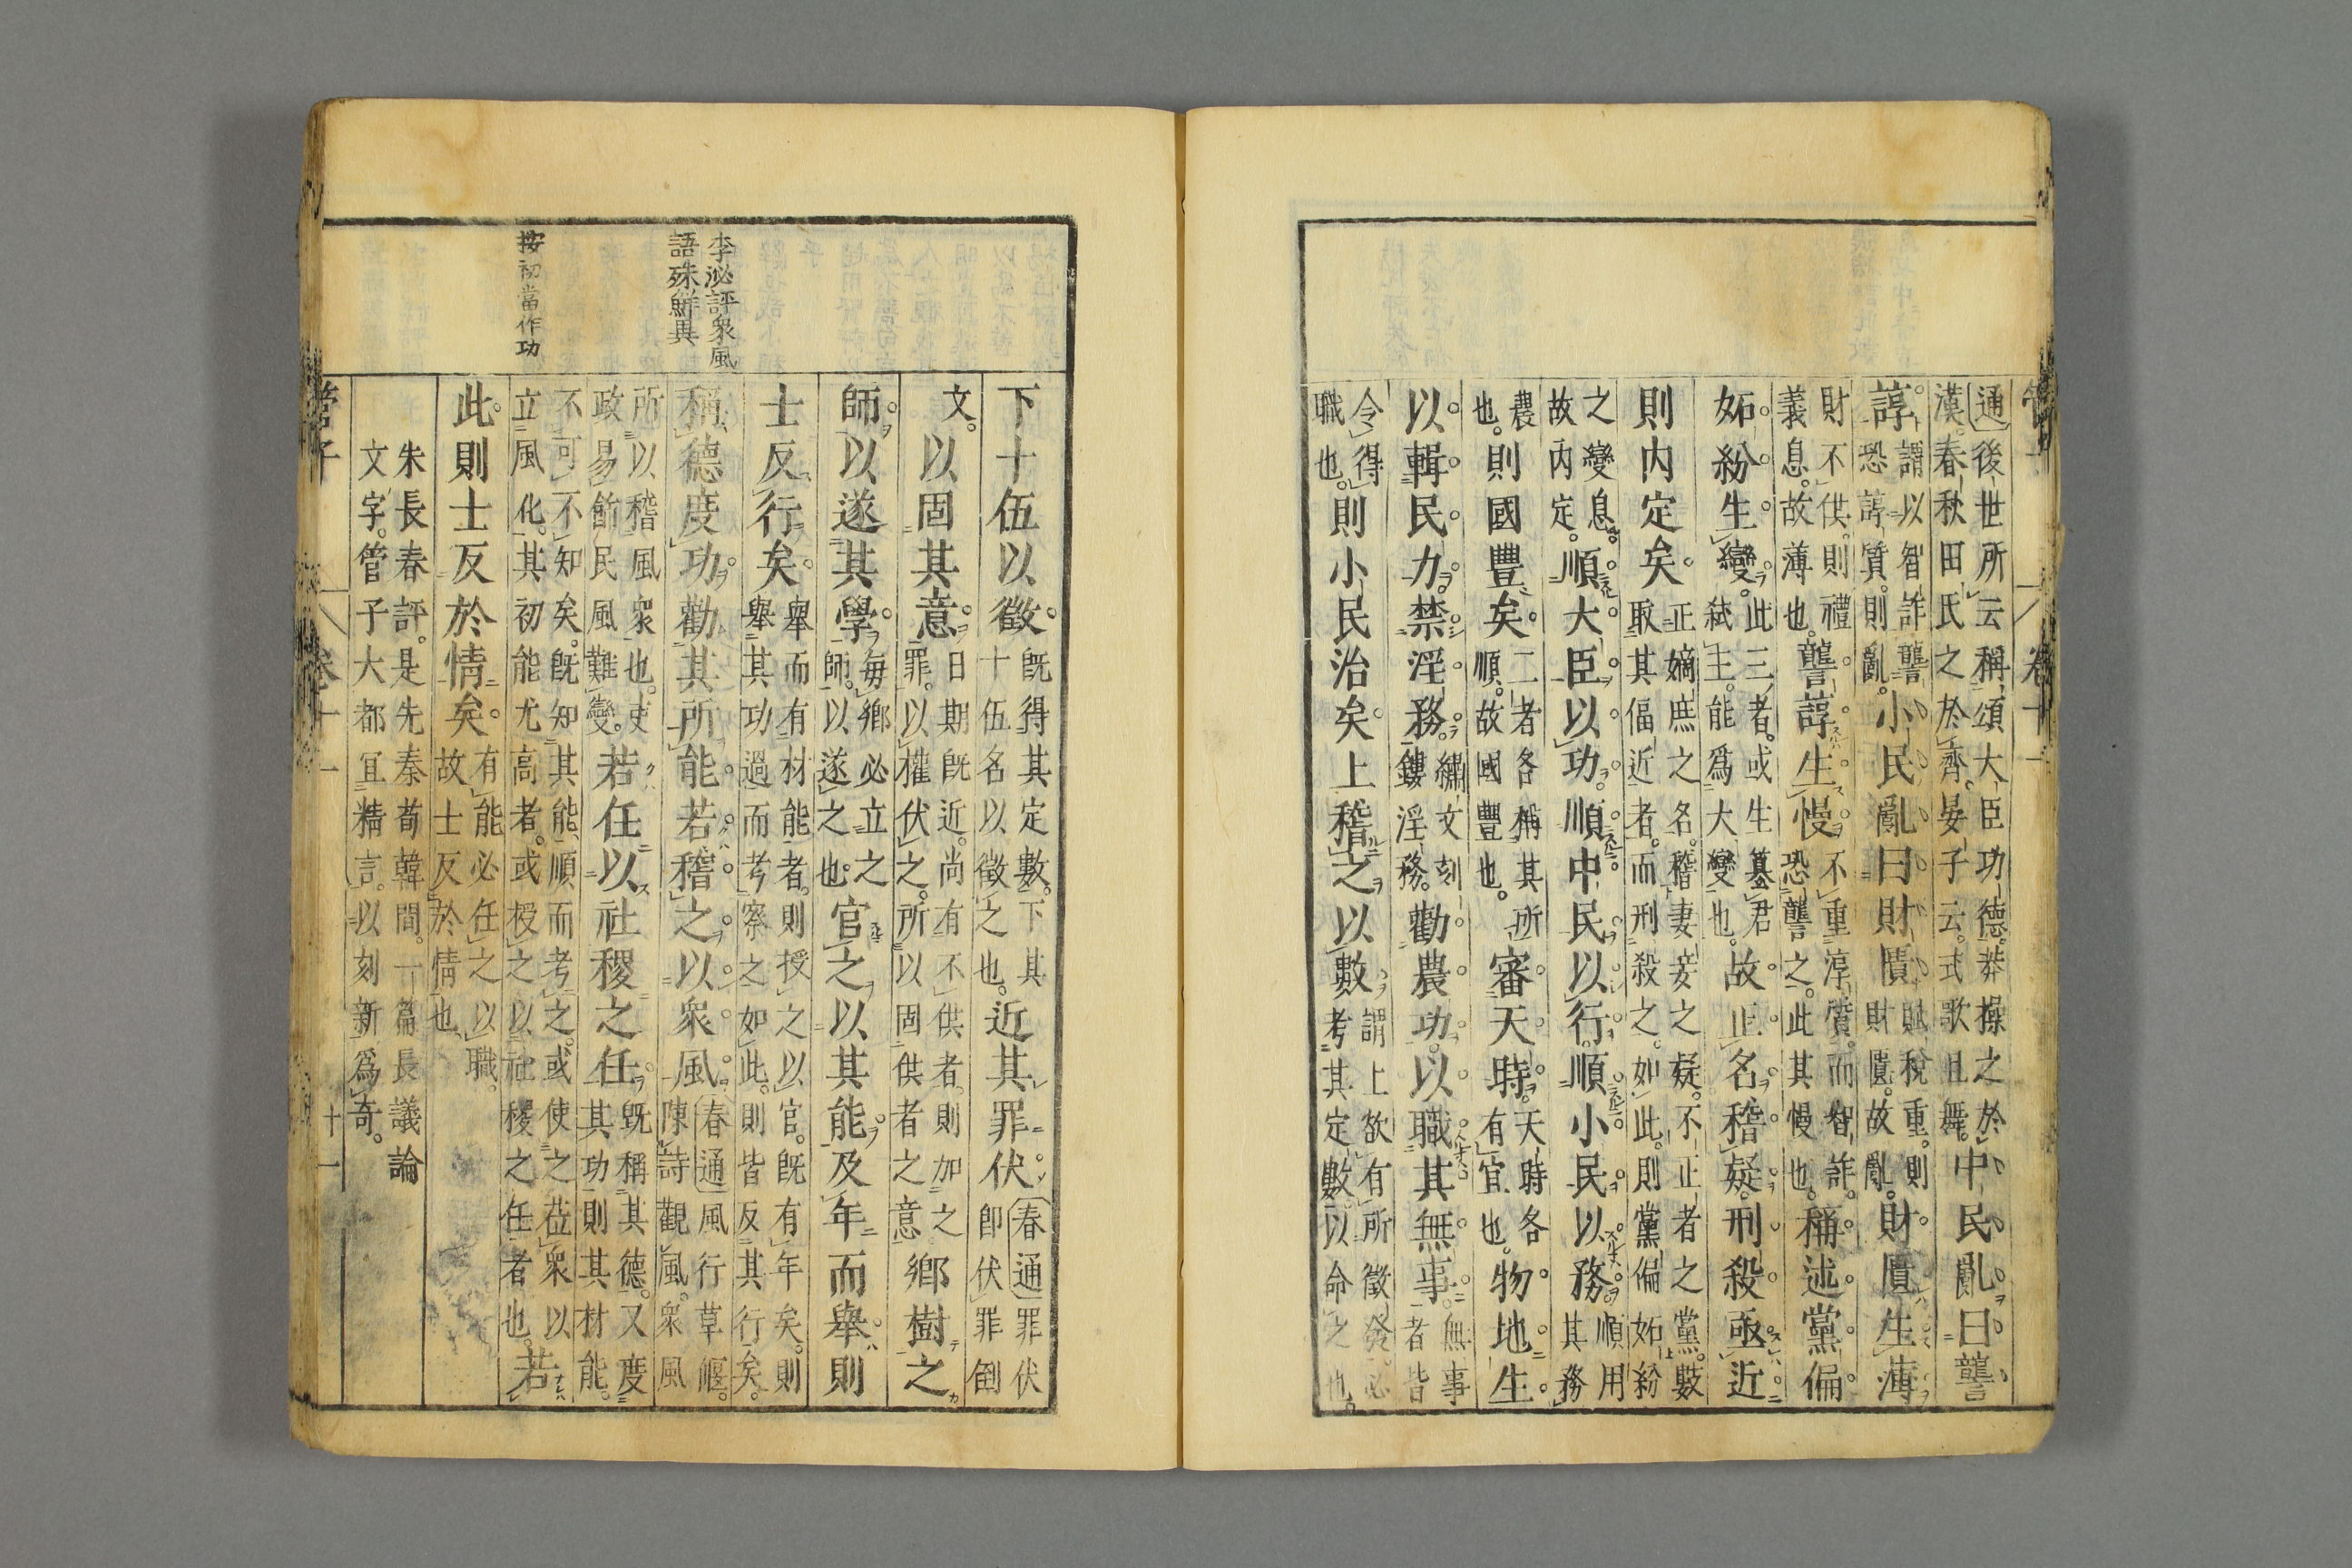 通後世所云稱頌大臣功德莽操之於
漢春秋田氏之於齊晏子云式歌且舞
中民亂曰讋
諄
謂以智詐讋
恐諄質則亂
小民亂曰財匱
賦稅重則
財匱故亂
財匱生薄
財不供則禮
義息故薄也
讋諄生慢
不重淳質而智詐
恐讋之此其慢也
稱述黨偏
妬紛生變
此三者或生簒君
弑主能爲大變也
故正名稽疑刑殺亟近
則内定矣
正嫡庶之名稽妻妾之疑不正者之黨數
取其偪近者而刑殺之如此則黨偏妬紛
之變息
故内定
順大臣以功順中民以行順小民以務
順用
其務
農
也
則國豐矣
二者各稱其所
順故國豐也
審天時
天時各
有官也
物地生
以輯民力禁淫務
繡文刻
鏤淫務
勸農功以職其無事
無事
者皆
令得
職也
則小民治矣上稽之以數
謂上欲有所徵發必
考其定數以命之也
下十伍以徵
既得其定數下其
十伍名以徵之也
近其罪伏
春通罪伏
卽伏罪劊
文
以固其意
日期既近尚有不供者則加之
罪以權伏之所以固供者之意
鄉樹之
師以遂其學
每鄉必立之
師以遂之也
官之以其能及年而舉則
士反行矣
舉而有材能者則授之以官既有年矣則
舉其功過而考察之如此則皆反其行矣
稱德度功勸其所能若稽之以衆風
春通風行草偃
陳詩觀風衆風
所以稽風衆也吏
政易節民風難變
若任以社稷之任
既稱其德又度
其功則其材能
不可不知矣既知其能順而考之或使之莅衆以
立風化其初能尤高者或授之以社稷之任者也
若
此則士反於情矣
有能必任之以職
故士反於情也
朱長春評是先秦荀韓間一篇長議論
文字管子大都宜精言以刻新爲奇
李泌評衆風
語殊鮮異
按初當作功
管子
卷十一
十一